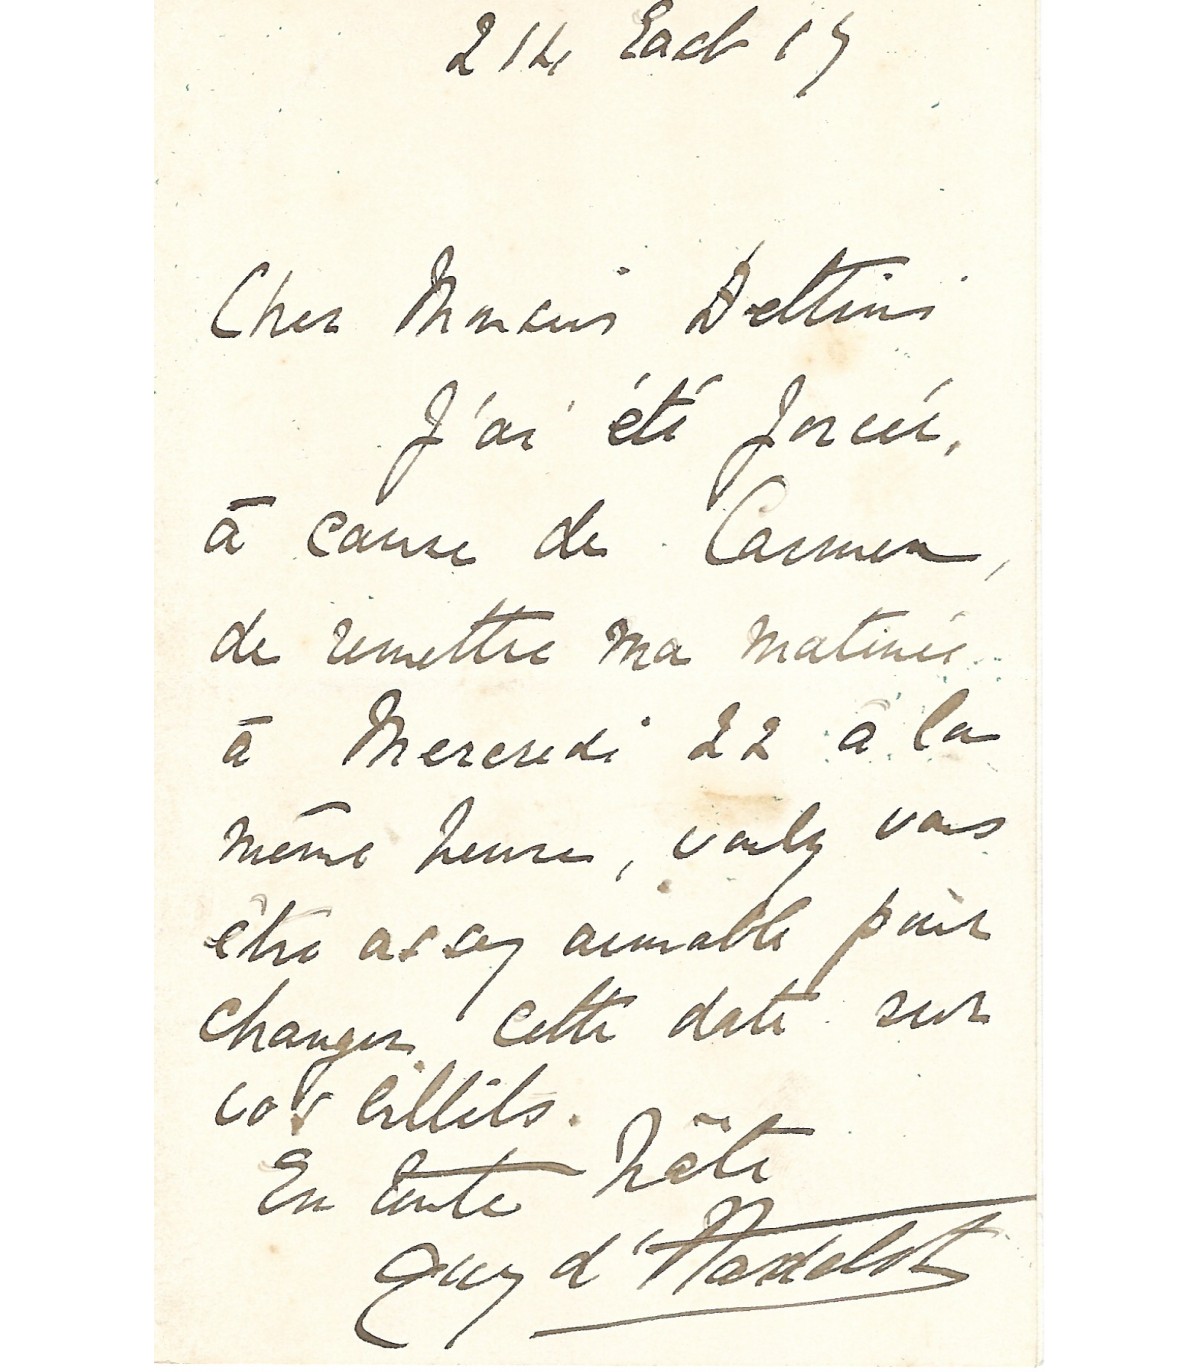 214 East 17
Cher Monsieur Bettini
J'ai été forcée,
à cause de Carmen,
de remettre ma matinée
à Mercredi 22 à la
même heure, voulez vous
être assez aimable pour
changer cette date sur
vos billets.
En toute hâte
Guy d'Hardelot